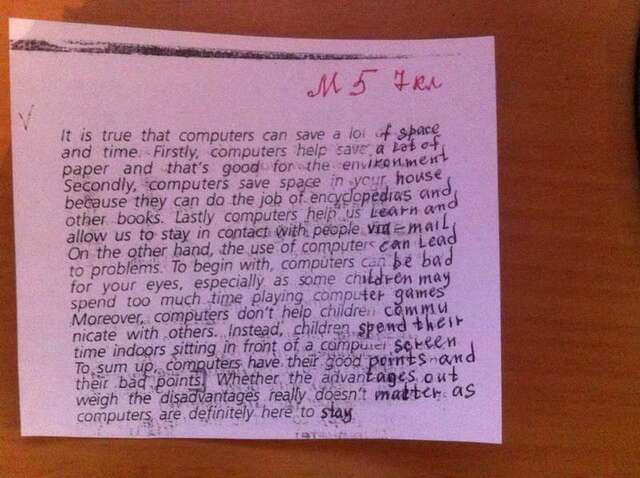 М 5 7 кл
It is true that computers can save a lot of space
and time. Firstly, computers help save a lot of
paper and that's good for the environment
Secondly, computers save space in your house,
because they can do the job of encyclopedias and
other books. Lastly computers help us learn and
allow us to stay in contact with people via e-mail,
On the other hand, the use of computers can lead
to problems. To begin with, computers can be bad
for your eyes, especially as some children may
spend too much time playing computer games
Moreover, computers don't help children commu
nicate with others. Instead, children spend their
time indoors sitting in front of a computer screen
To sum up, computers have their good points and
their bad points. Whether the advantages out
weigh the disadvantages really doesn't matter as
computers are definitely here to stay